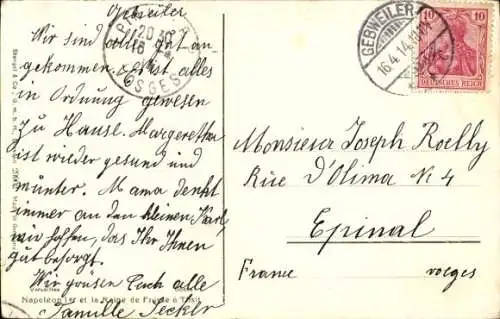 Gebweiler
Wir sind alle gut an-
gekommen, es ist alles
in Ordnung gewesen
zu Hause. Margeretha
ist wieder gesund und
munter. Mama denkt
immer an den kleinen Karl,
wir hoffen, das Ihr Ihnen
gut besorgt.
Wir grüsen Euch alle
Familie Jecker
Napoléon 1er et la Reine de Prusse à Tilsit
Versailles
20 30
16
GEBWEILER
16.4.14
10 10
DEUTSCHES REICH
Monsieur Joseph Roelly
Rue D'Olima N. 4
Epinal
France
vosges